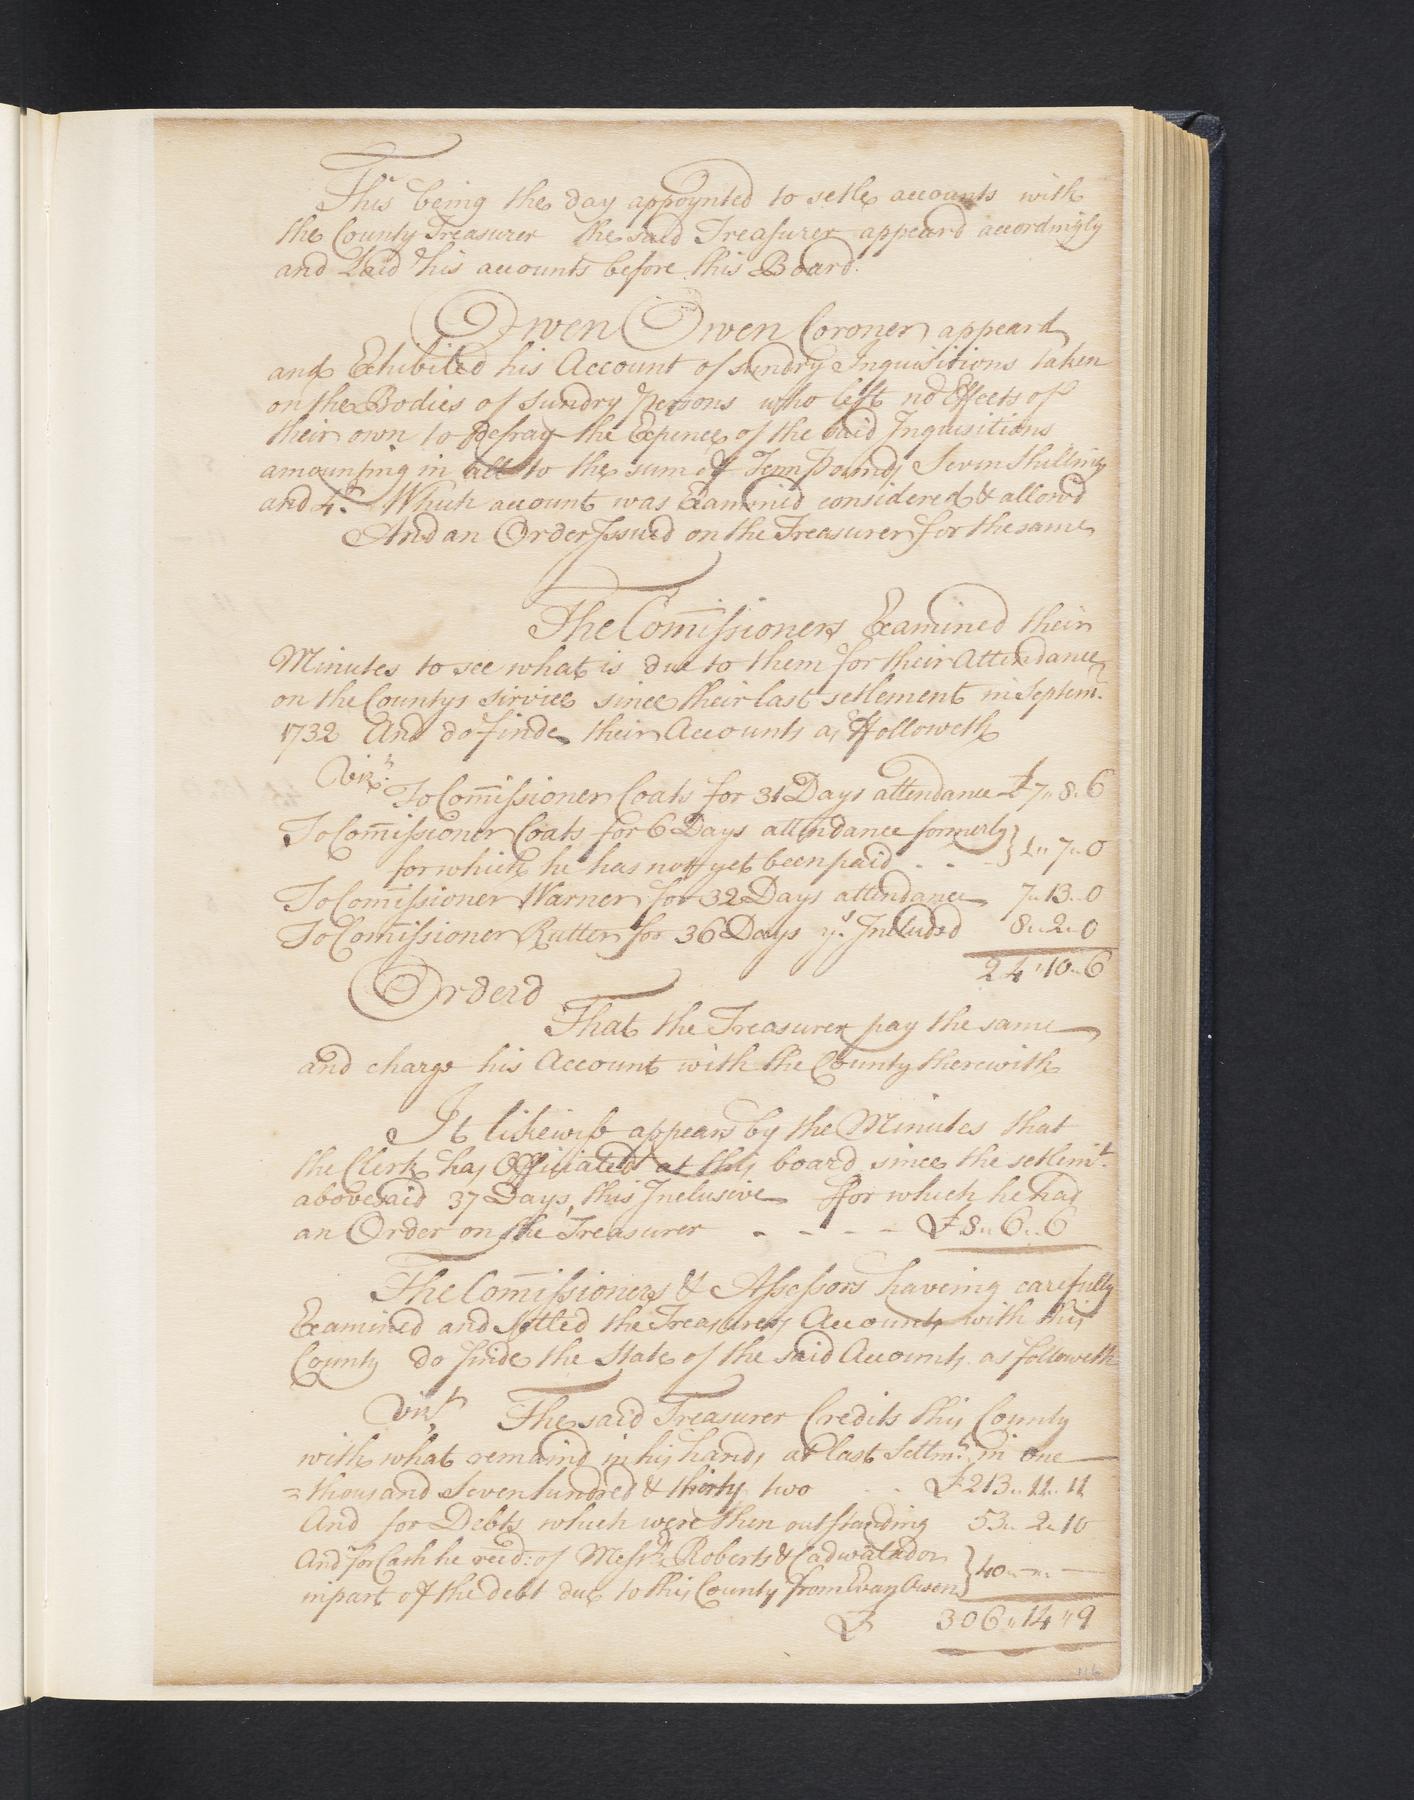 This being the day appoynted to setle accounts with
the County Treasurer the said Treasurer appeard accordingly
and Laid his accounts before this Board.
Owen Owen Coroner appeard
and Exhibited his Account of sundry Inquisitions taken
on the Bodies of sundry Persons who left no Effects of
their own to Defray the Expence of the said Inquisitions
amounting in all to the sum of Tenn Pounds Seven Shillings
and 4.d Which account was Examined considered & allowd
And an Order Issued on the Treasurer for the same
The Com̄issioners Examined their
Minutes to see what is due to them for their Attendance
on the Countys service since their last setlement in Septem.r
1732 And do finde their Accounts as ffolloweth
Viz.t To Com̄issioner Coats for 31 Days attendance £7,,8,,6
To Com̄issioner Coats for 6 Days attendance formerly
for which he has not yet been paid - - - } 1,,7,,0
To Com̄issioner Warner for 32 Days attendance 7,,13,,0
To Com̄issioner Rutter for 36 Days y.s Included 8,,2,,0
24,,10,,6
Orderd
That the Treasurer pay the same
and charge his Account with the County therewith
It likewise appears by the Minutes that
the Clerk has Officiated at this board since the setlem.t
abovesaid 37 Days, this Inclusive ffor which he had
an Order on the Treasurer - - - - £8,,6,,6
The Com̄issioners & Assessors haveing carefully
Examined and Setled the Treasurers Accounts with this
County do finde the State of the said Accounts as followeth
viz.t The said Treasurer Credits this County
with what remaind in his hands at last Settm.t in one
= thousand Seven hundred & thirty two - - £213,,11,,11
And for Debts which were then outstanding 53,,2,,10
And for Cash he recd: of Mess.rs Roberts & Cadwalador
in part of the debt due to this County from Evan Owen } 40,,—,,—
£ 306,,14,,9
116